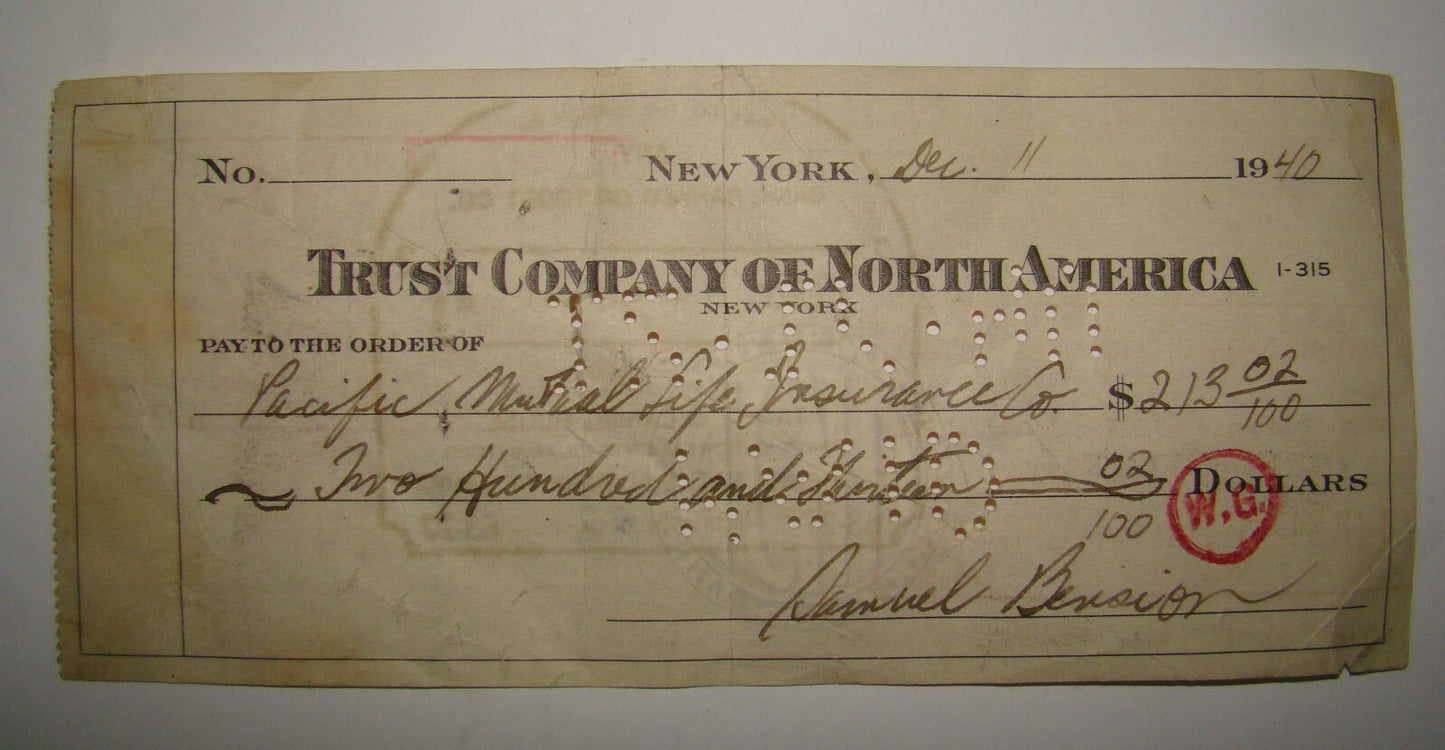 No. NEW YORK, Dec. 11 1940
TRUST COMPANY OF NORTH AMERICA 1-315
NEW YORK
PAY TO THE ORDER OF
Pacific Mutual Life Insurance Co. $213 02/100
Two Hundred and Thirteen 02/100 DOLLARS
W.G.
Samuel Bension